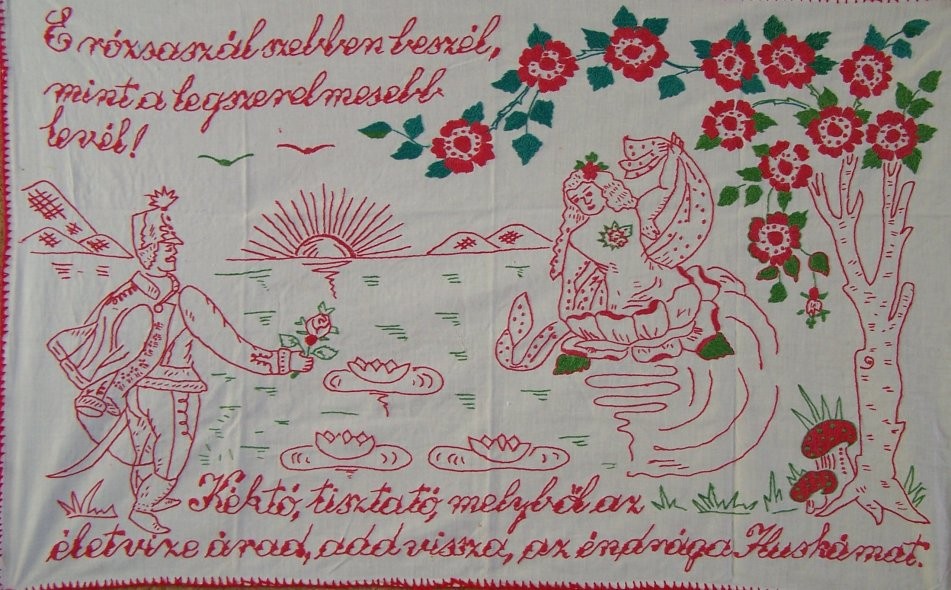 E rózsaszál szebben beszél,
mint a legszerelmesebb
levél!
Kék tó, tiszta tó, melyből az
élet vize árad, add vissza, az én drága Iluskámat.